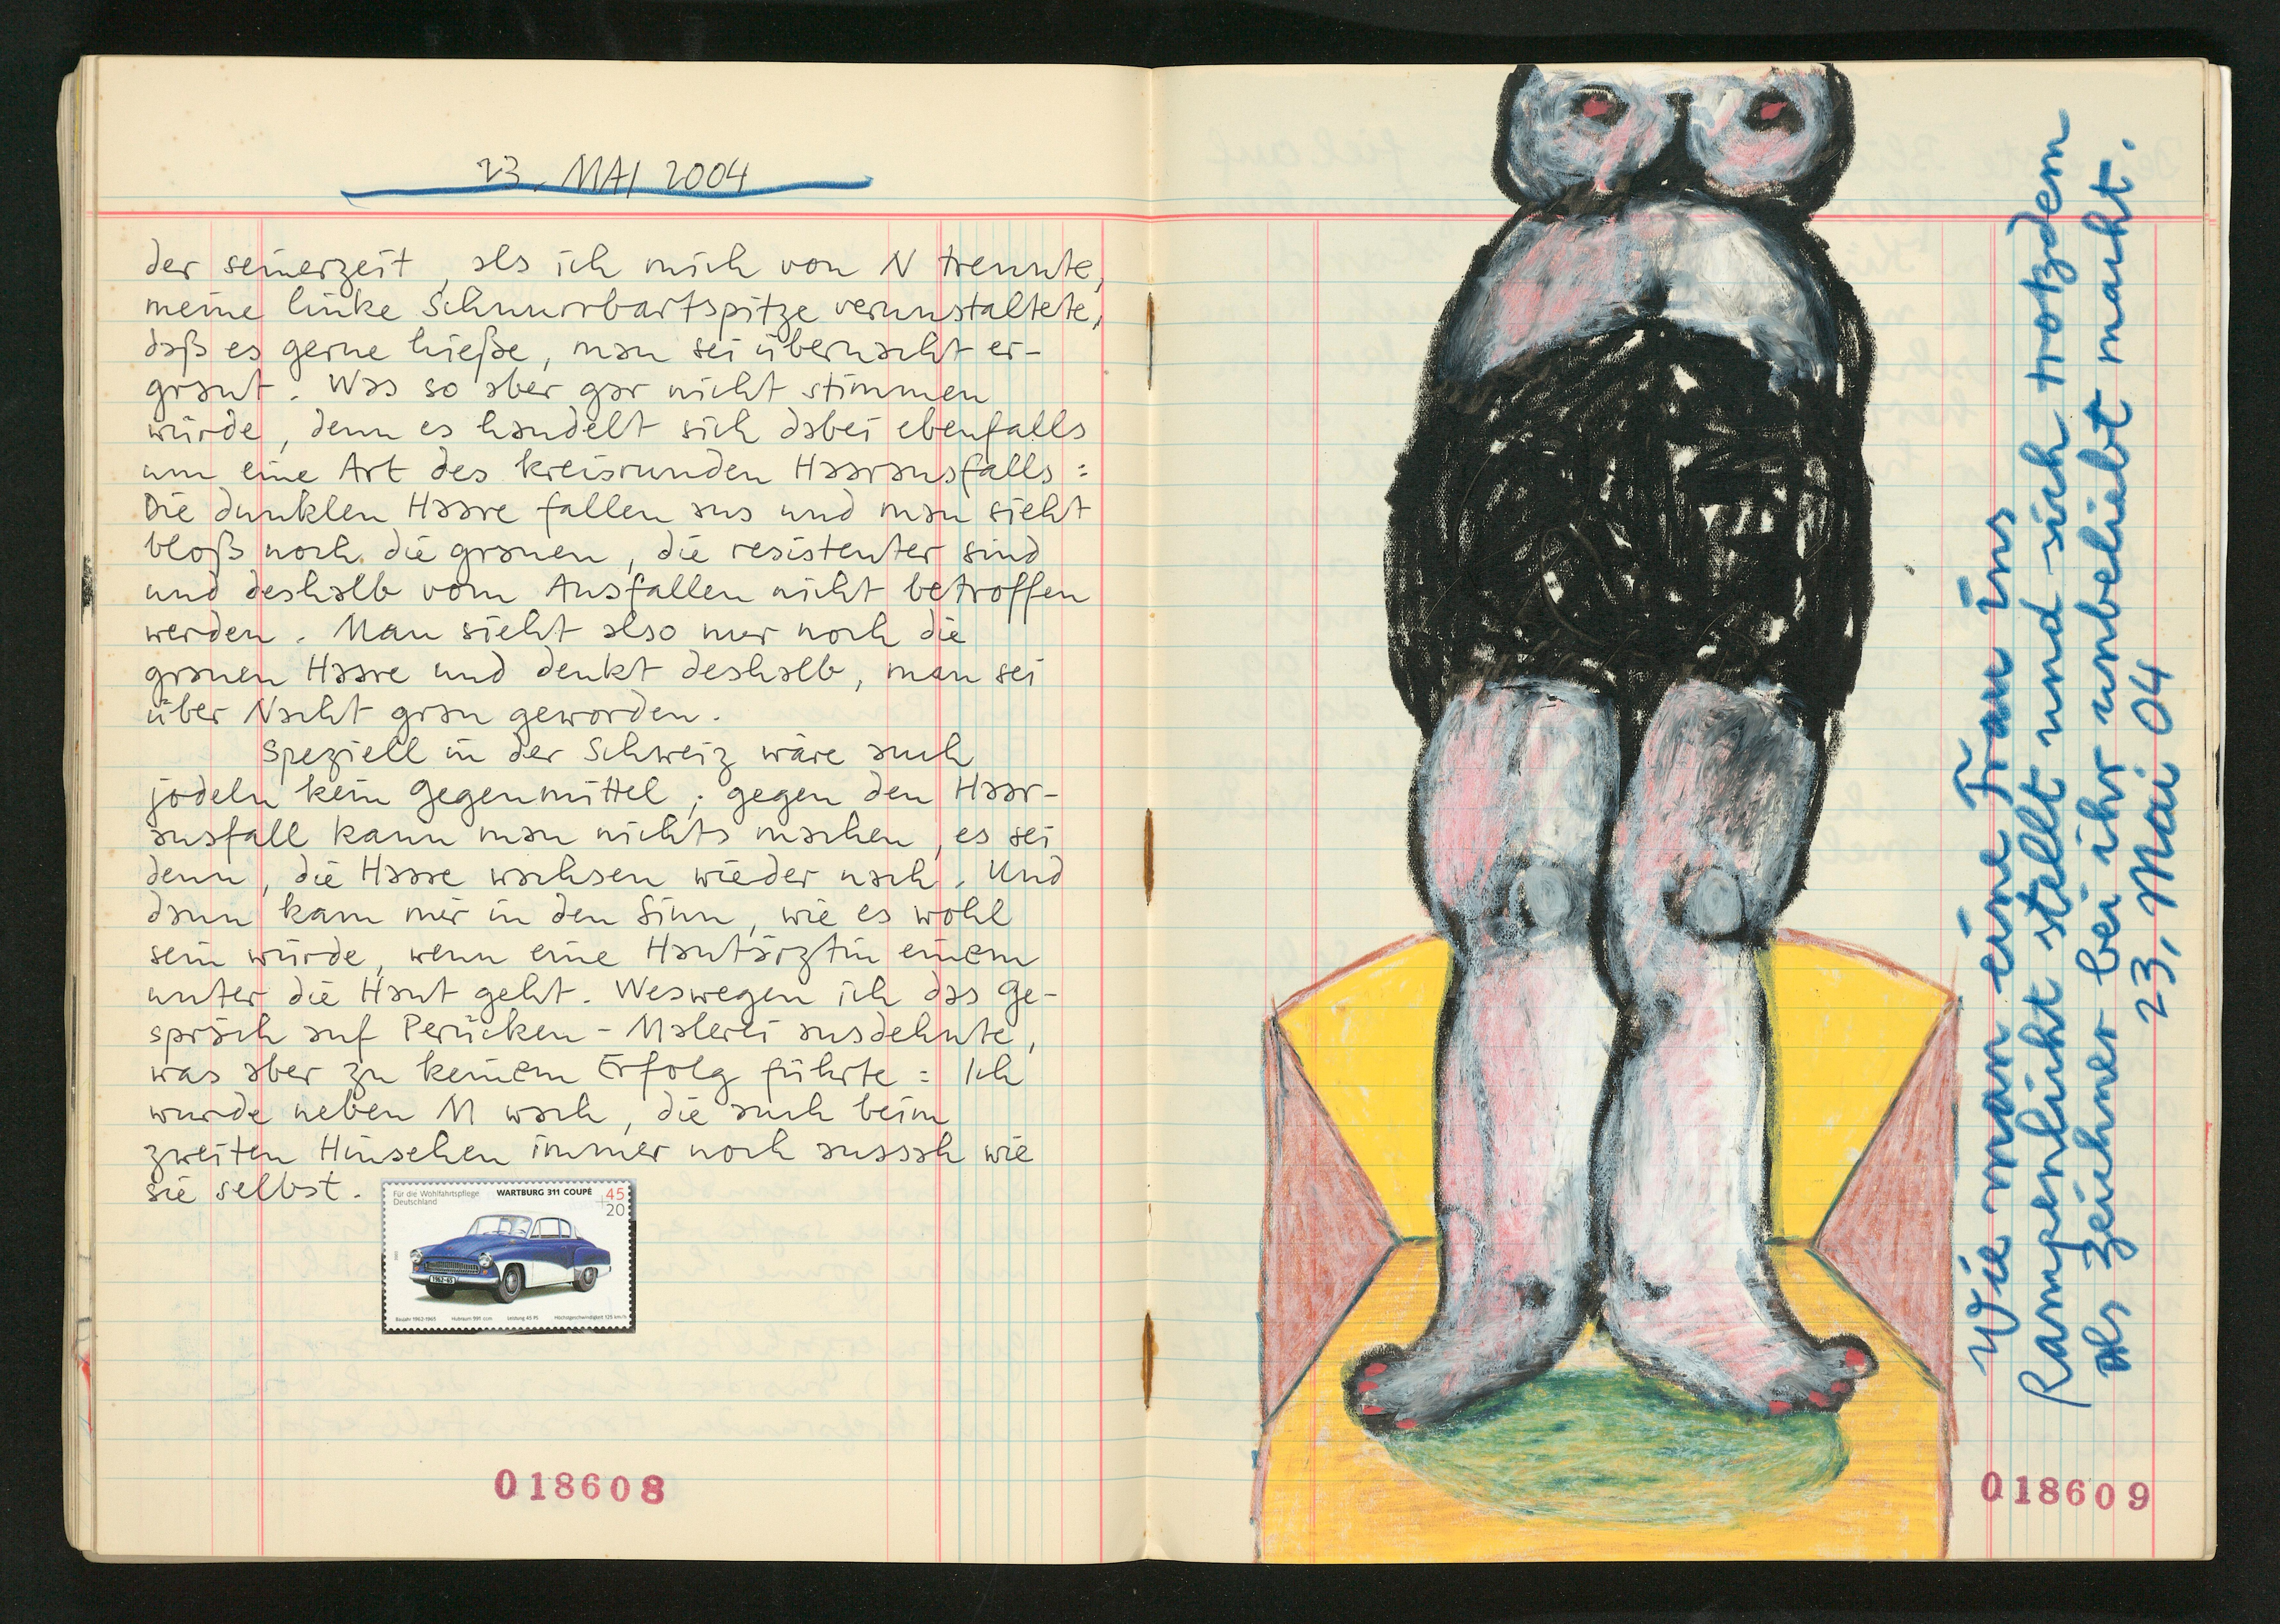 23. MAI 2004
der seinerzeit, als ich mich von N trennte,
meine linke Schnurrbartspitze verunstaltete,
daß es gerne hieße, man sei übernacht er-
graut. Was so aber gar nicht stimmen
würde, denn es handelt sich dabei ebenfalls
um eine Art des kreisrunden Haarausfalls:
Die dunklen Haare fallen aus und man sieht
bloß noch die grauen, die resistenter sind
und deshalb vom Ausfallen nicht betroffen
werden. Man sieht also nur noch die
grauen Haare und denkt deshalb, man sei
über Nacht grau geworden.
Speziell in der Schweiz wäre auch
jodeln kein Gegenmittel; gegen den Haar-
ausfall kann man nichts machen, es sei
denn, die Haare wachsen wieder nach. Und
dann kam mir in den Sinn, wie es wohl
sein würde, wenn eine Hautärztin einem
unter die Haut geht. Weswegen ich das Ge-
spräch auf Perücken-Malerei ausdehnte,
was aber zu keinem Erfolg führte: Ich
wurde neben M wach, die auch beim
zweiten Hinsehen immer noch aussah wie
sie selbst.
Für die Wohlfahrtspflege
Deutschland
WARTBURG 311 COUPÉ
45
+20
1962-65
Baujahr 1962-1965 Hubraum 991 ccm Leistung 45 PS Höchstgeschwindigkeit 125 km/h
018608
Wie man eine Frau ins
Rampenlicht stellt und sich trotzdem
als Zeichner bei ihr unbeliebt macht.
23. Mai 04
018609